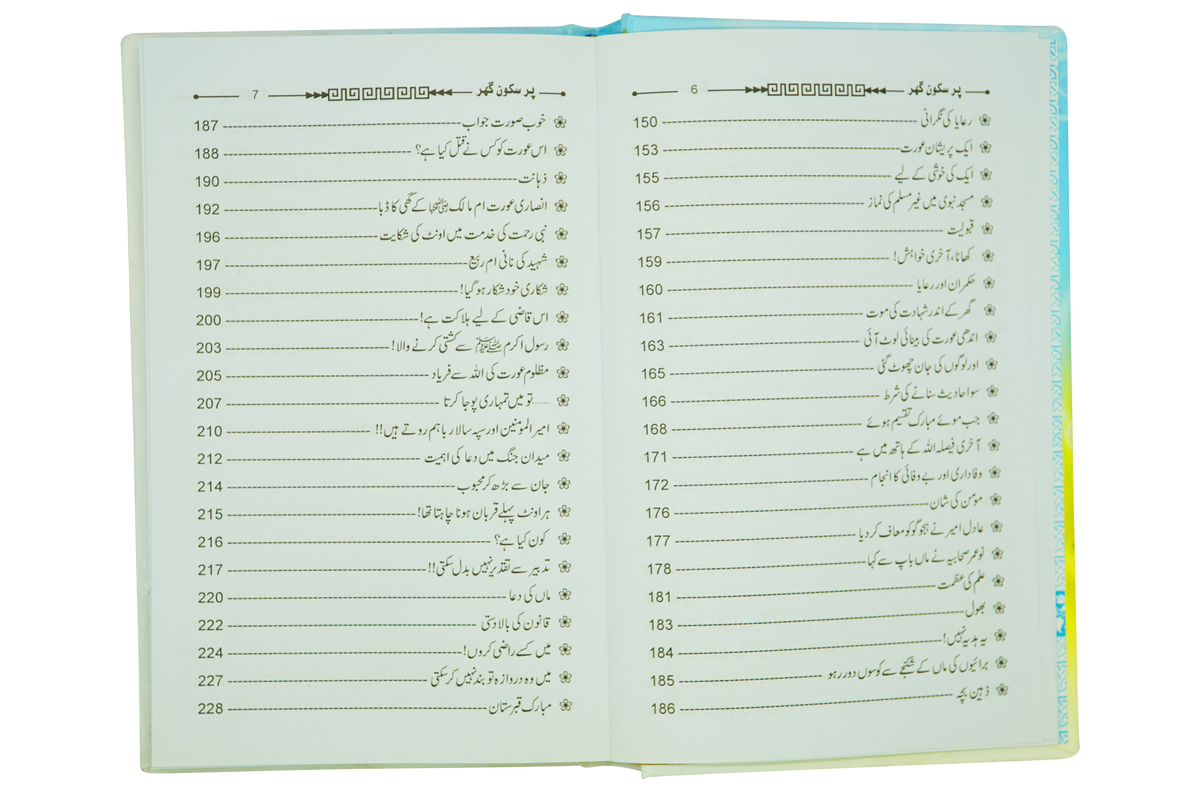 پر سکون گھر 6
رعایا کی نگرانی 150
ایک پریشان عورت 153
ایک کی خوشی کے لیے 155
مسجد نبوی میں غیر مسلم کی نماز 156
قبولیت 157
کھانا، آخری خواہش! 159
حکمران اور رعایا 160
گھر کے اندر شہادت کی موت 161
اندھی عورت کی بینائی لوٹ آئی 163
اور لوگوں کی جان چھوٹ گئی 165
سو احادیث سنانے کی شرط 166
جب موئے مبارک تقسیم ہوئے 168
آخری فیصلہ اللہ کے ہاتھ میں ہے 171
وفاداری اور بے وفائی کا انجام 172
مومن کی شان 176
عادل امیر نے ہجو گو کو معاف کر دیا 177
نو عمر صحابیہ نے ماں باپ سے کہا 178
علم کی عظمت 181
بھول 183
یہ ہدیہ نہیں! 184
برائیوں کی ماں کے شکنجے سے کوسوں دور رہو 185
ذہین بچہ 186
پر سکون گھر 7
خوب صورت جواب 187
اس عورت کو کس نے قتل کیا ہے؟ 188
ذہانت 190
انصاری عورت ام مالک رضی اللہ عنہا کے گھی کا ڈبا 192
نبی رحمت کی خدمت میں اونٹ کی شکایت 196
شہید کی نانی ام ربیع 197
شکاری خود شکار ہو گیا! 199
اس قاضی کے لیے ہلاکت ہے! 200
رسول اکرم ﷺ سے کشتی کرنے والا! 203
مظلوم عورت کی اللہ سے فریاد 205
.....تو میں تمہاری پوجا کرتا 207
امیر المؤمنین اور سپہ سالار باہم روتے ہیں!! 210
میدان جنگ میں دعا کی اہمیت 212
جان سے بڑھ کر محبوب 214
ہر اونٹ پہلے قربان ہونا چاہتا تھا! 215
کون کیا ہے؟ 216
تدبیر سے تقدیر نہیں بدل سکتی!! 217
ماں کی دعا 220
قانون کی بالا دستی 222
میں کسے راضی کروں! 224
میں وہ دروازہ تو بند نہیں کر سکتی 227
مبارک قبرستان 228